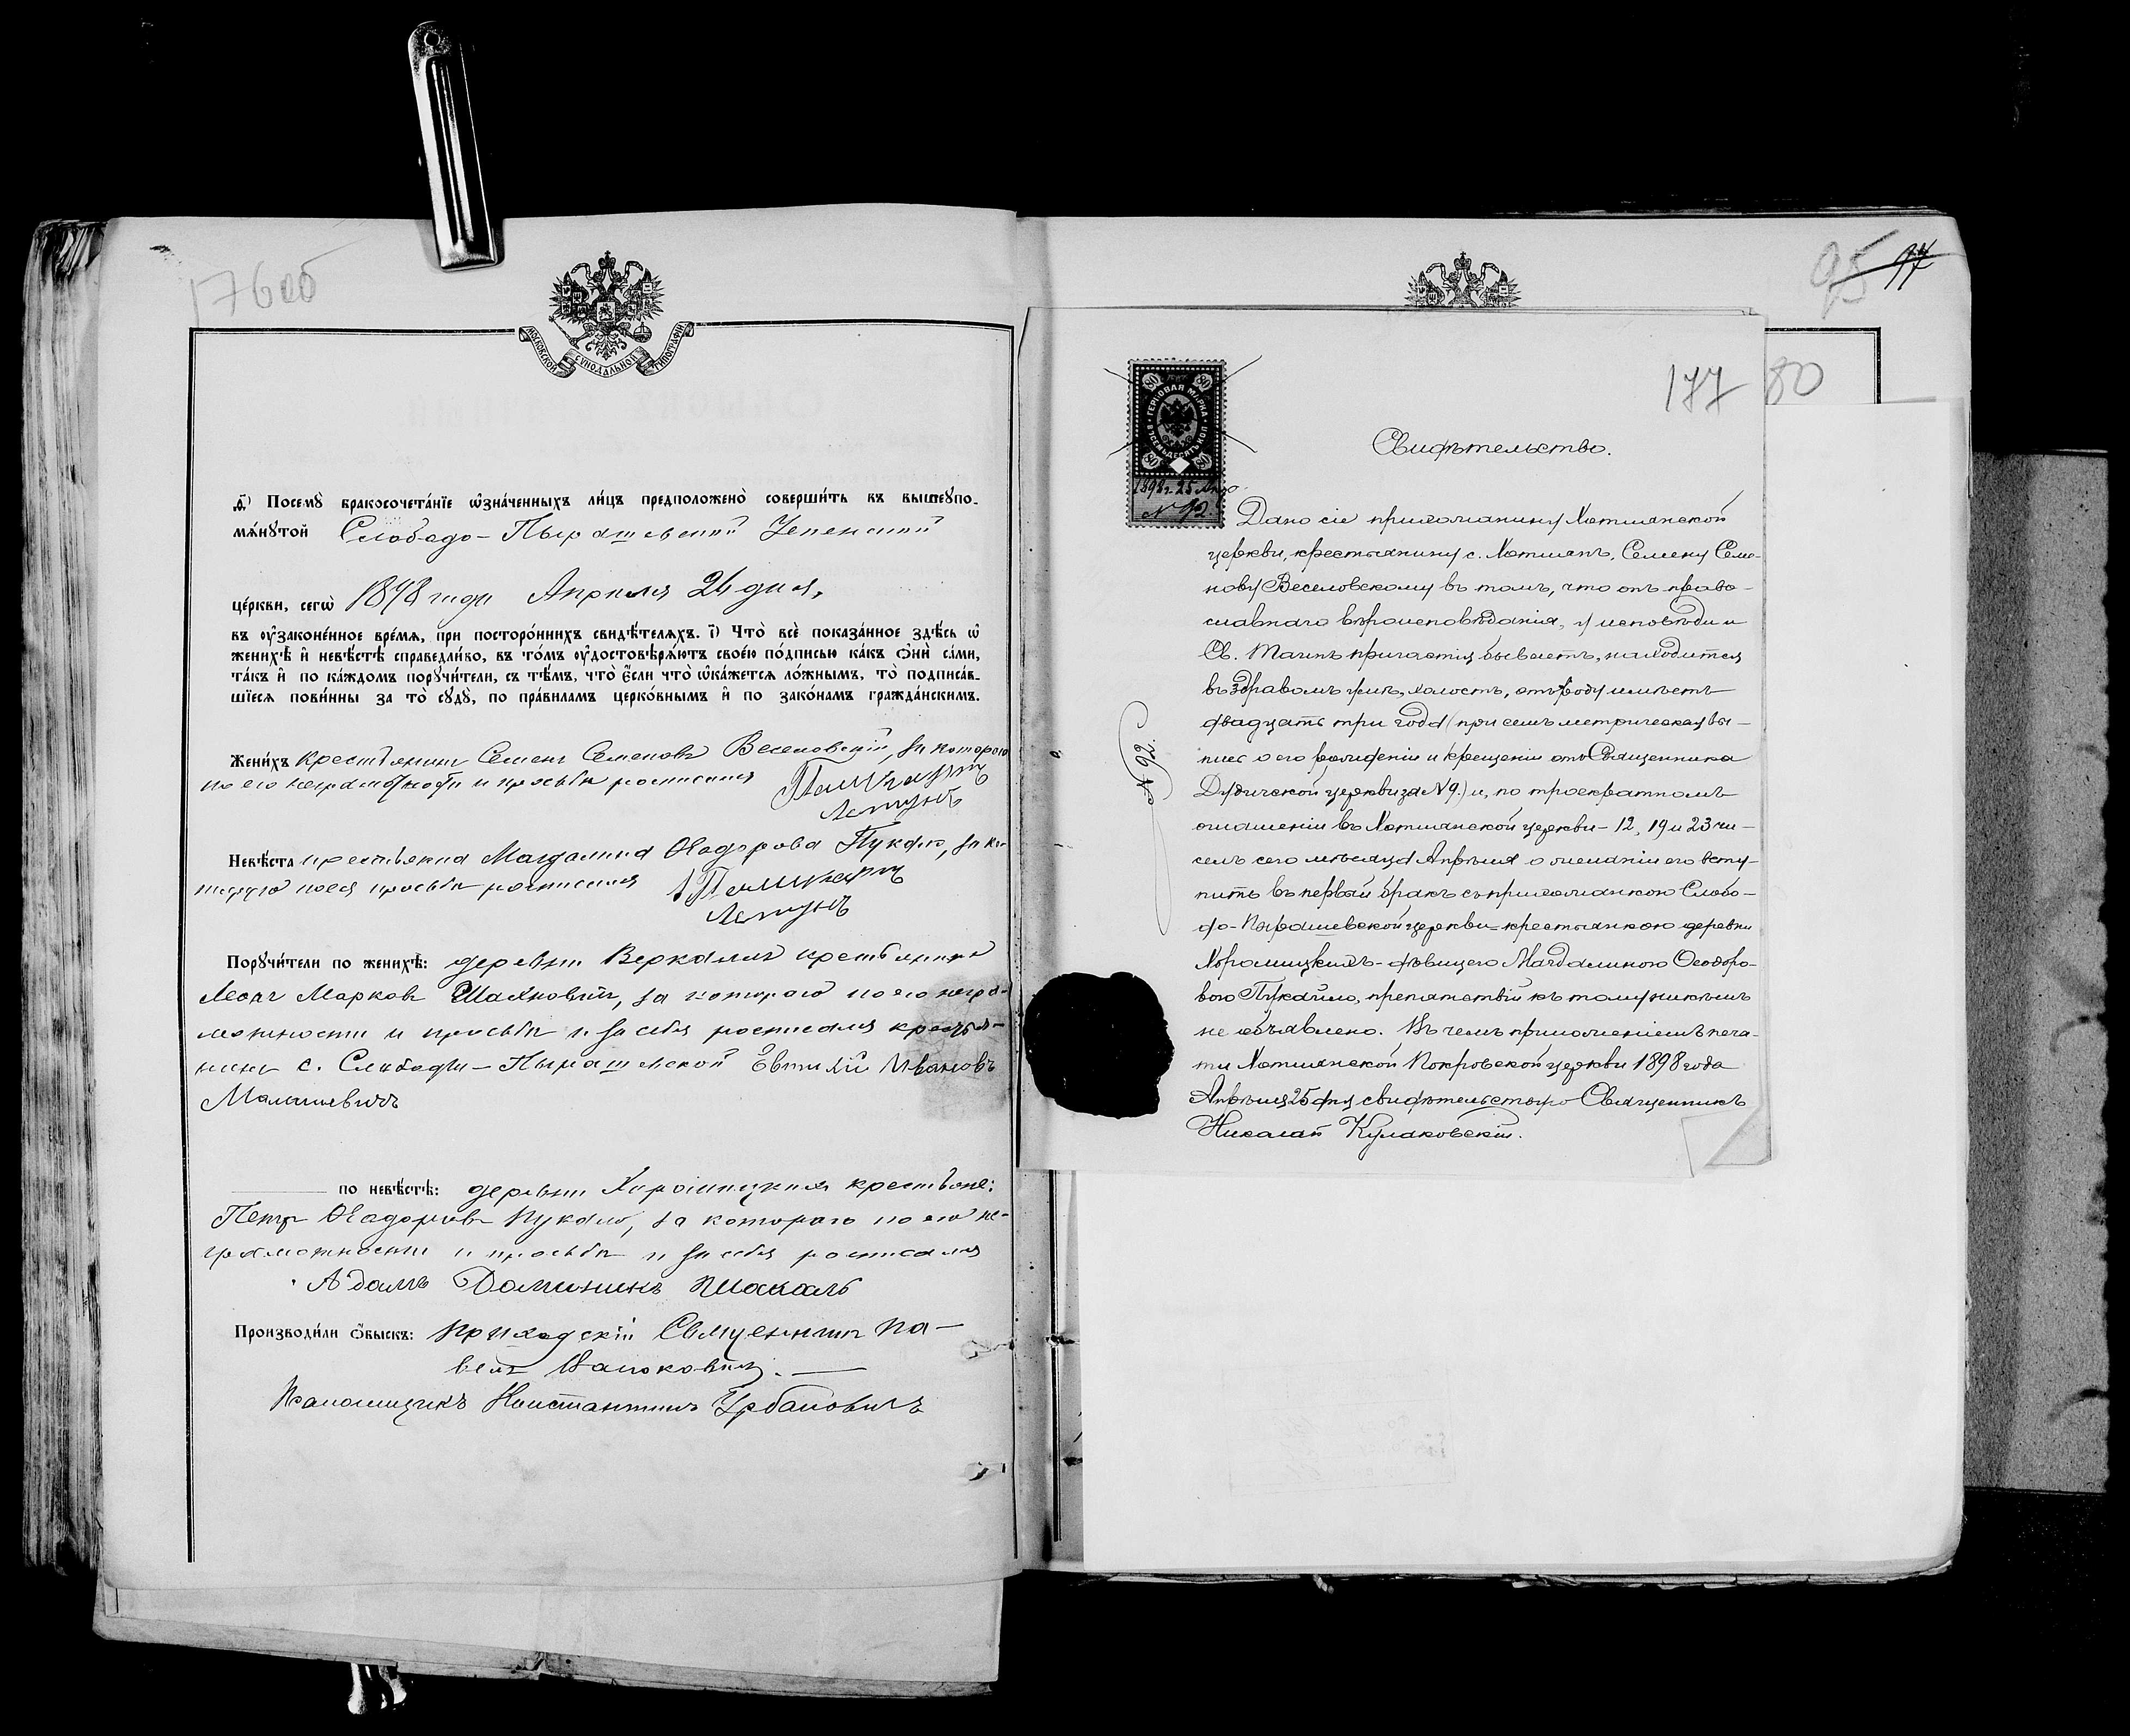 176об
МОСКОВСКОЙ СѴНОДАЛЬНОЙ ТИПОГРАФІИ
д҃) Посемꙋ̀ бракосочета́нїе ѡ҆зна́ченныхъ ли́цъ предположено̀ соверши́ть въ вышеꙋпо-
мѧ́нꙋтой Слободо-Пырашевской Успенской
це́ркви, сегѡ̀ 1898 года Апреля 26 дня,
въ ᲂу҆зако́нённое вре́мѧ, при посторо́ннихъ свидѣ́телѧхъ. і҃) Что̀ всѐ пока́занное здѣ́сь ѡ҆
женихѣ̀ и҆ невѣ́стѣ справедли́во, въ то́мъ ᲂу҆достовѣрѧ́ютъ свое́ю по́дписью ка́къ ѻ҆нѝ са́ми,
та́къ и҆ по ка́ждомъ порꙋчи́тели, съ тѣ́мъ, что̀ є҆́сли что̀ ѡ҆ка́жетсѧ ло́жнымъ, то̀ подписа́в-
шїесѧ пови́нны за то̀ сꙋдꙋ̀, по пра́виламъ церко́внымъ и҆ по зако́намъ гражда́нскимъ.
Жени́хъ крестьянинъ Семенъ Семеновъ Веселовскій, за котораго
по его неграмотности и просьбе росписался
Невѣ́ста крестьянка Магдалина Ѳеодорова Пукало, за ко-
торую по ея просьбе росписался
Порꙋчи́тели по женихѣ̀: деревни Веркалы крестьянинъ
Леонъ Марковъ Шахновичъ, за котораго по его негра-
мотности и просьбе и за себя росписался крестья-
нинъ с. Слободы-Пырашевской Евтихій Ивановъ
Малашевичъ
по невѣ́стѣ: деревни Хоромицкихъ крестьяне:
Петръ Ѳеодоровъ Пукало, за котораго по его не-
грамотности и просьбе и за себя росписался
Адамъ Доминикъ Шакаль
Производи́ли ѻ҆́быскъ: Приходскій Священникъ Па-
велъ
Псаломщикъ Константинъ Урбановичъ
95 97
80
177
80 80
ГЕРБОВАЯ МАРКА
ВОСЕМЬДЕСЯТЪ КОП.
80 80
1898 г. 25 Апр.
№ 92.
Свидѣтельство.
Дано сіе прихожанину Хотлянской
церкви, крестьянину с. Хотлянъ, Семену Семе-
нову Веселовскому въ томъ, что онъ право-
славнаго вѣроисповѣданія, у исповѣди и
Св. Таинъ причастія бываетъ, находится
въ здравомъ умѣ, холостъ, отъ роду имѣетъ
двадцать три года (при семъ метрическая вы-
пись о его рожденіи и крещеніи отъ Священника
Дудичской церкви за № 9.) и, по троекратномъ
оглашеніи въ Хотлянской церкви - 12, 19 и 23 чи-
селъ сего мѣсяца Апрѣля о желаніи его всту-
пить въ первый бракъ съ прихожанкою Слобо-
до-Пырашевской церкви - крестьянкою деревни
Хоромицкихъ - дѣвицею Магдалиною Ѳеодоро-
вою Пукайло, препятствій къ тому никѣмъ
не объявлено. Въ чемъ приложеніемъ печа-
ти Хотлянской Покровской церкви 1898 года
Апрѣля 25 дня свидѣтельствую Священникъ
Николай Кулаковскій.
№ 92.